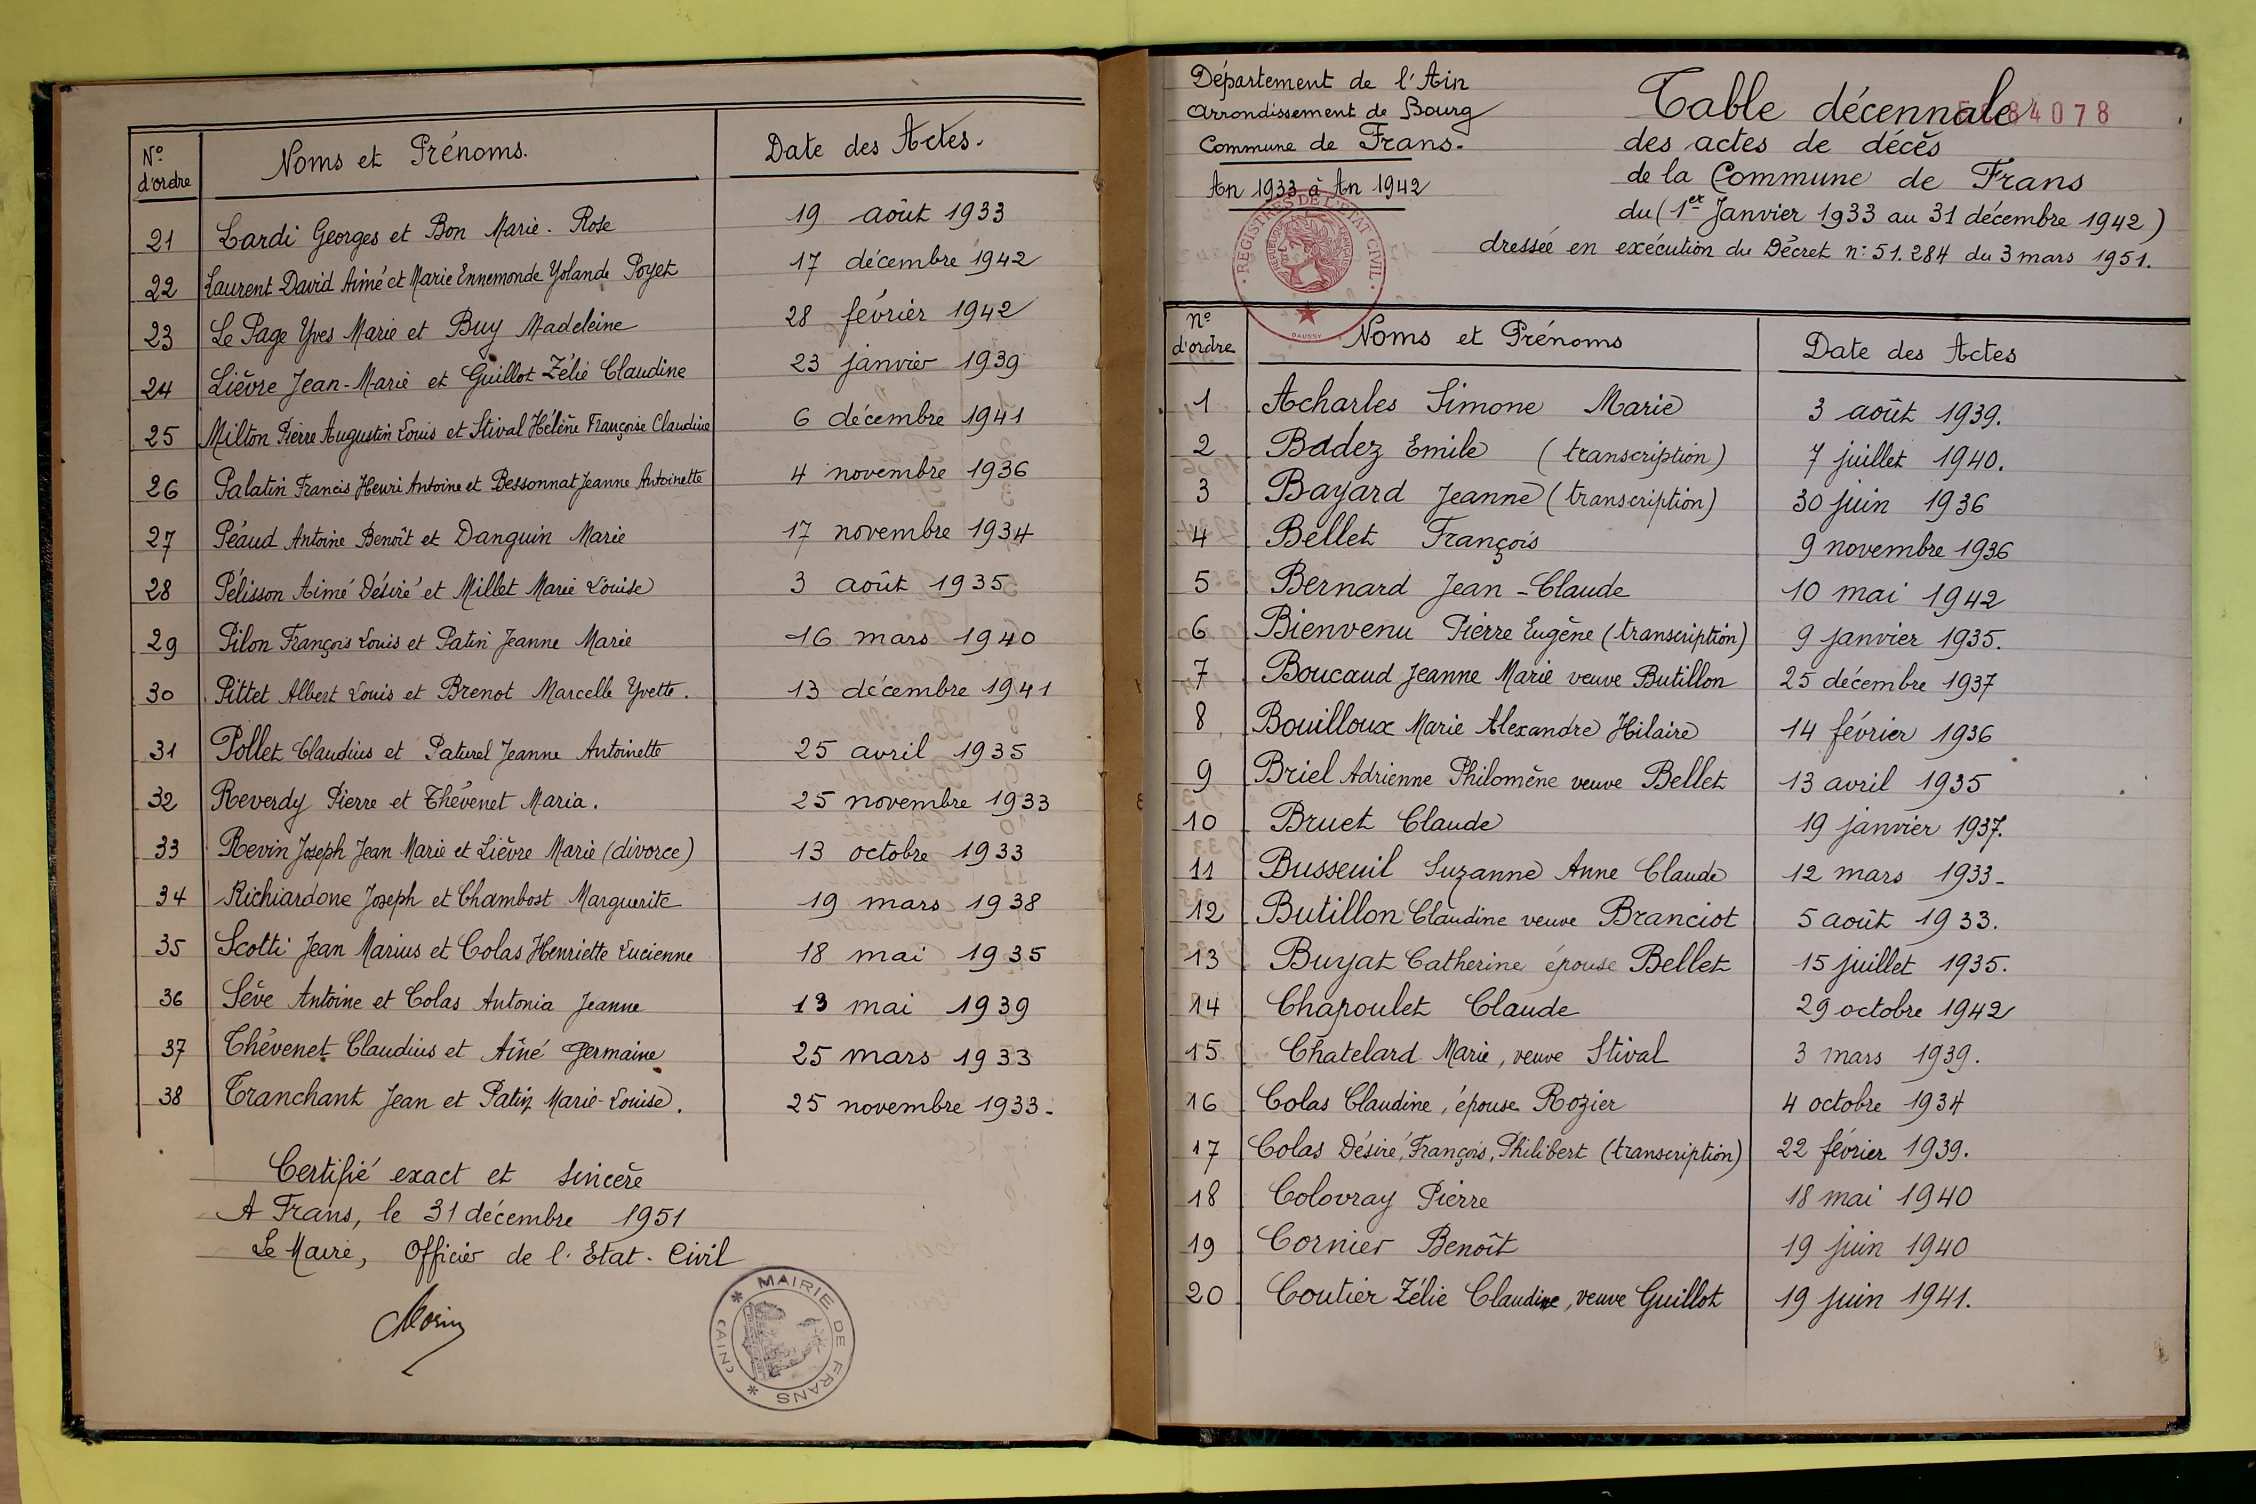 N° d'ordre Noms et Prénoms. Date des Actes.
21 Lardi Georges et Bon Marie-Rose 19 août 1933
22 Laurent David Aimé et Marie Ennemonde Yolande Poyet 17 décembre 1942
23 Le Page Yves Marie et Buy Madeleine 28 février 1942
24 Lièvre Jean-Marie et Guillot Zélie Claudine 23 janvier 1939
25 Milton Pierre Augustin Louis et Stival Hélène Françoise Claudine 6 décembre 1941
26 Palatin Francis Henri Antoine et Bessonnat Jeanne Antoinette 4 novembre 1936
27 Péaud Antoine Benoît et Danguin Marie 17 novembre 1934
28 Pélisson Aimé Désiré et Millet Marie Louise 3 août 1935
29 Pilon François Louis et Patin Jeanne Marie 16 mars 1940
30 Pittet Albert Louis et Brenot Marcelle Yvette. 13 décembre 1941
31 Pollet Claudius et Paturel Jeanne Antoinette 25 avril 1935
32 Reverdy Pierre et Thévenet Maria. 25 novembre 1933
33 Revin Joseph Jean Marie et Lièvre Marie (divorce) 13 octobre 1933
34 Richiardone Joseph et Chambost Marguerite 19 mars 1938
35 Scotti Jean Marius et Colas Henriette Lucienne 18 mai 1935
36 Sève Antoine et Colas Antonia Jeanne 13 mai 1939
37 Thévenet Claudius et Aîné Germaine 25 mars 1933
38 Tranchant Jean et Patin Marie-Louise. 25 novembre 1933-
Certifié exact et sincère
A Frans, le 31 décembre 1951
Le Maire, Officier de l'Etat-Civil
MAIRIE DE FRANS * (AIN) *
Département de l'Ain
Arrondissement de Bourg
Commune de Frans.
An 1933 à An 1942
REGISTRES DE L'ETAT CIVIL
DAUSSY
Table décennale
4078
des actes de décès
de la Commune de Frans
du (1er Janvier 1933 au 31 décembre 1942)
dressée en exécution du Décret n: 51.284 du 3 mars 1951.
N° d'ordre Noms et Prénoms Date des Actes
1 Acharles Simone Marie 3 août 1939.
2 Badez Emile (transcription) 7 juillet 1940.
3 Bayard Jeanne (transcription) 30 juin 1936
4 Bellet François 9 novembre 1936
5 Bernard Jean-Claude 10 mai 1942
6 Bienvenu Pierre Eugène (transcription) 9 janvier 1935.
7 Boucaud Jeanne Marie veuve Butillon 25 décembre 1937
8 Bouilloux Marie Alexandre Hilaire 14 février 1936
9 Briel Adrienne Philomène veuve Bellet 13 avril 1935
10 Bruet Claude 19 janvier 1937.
11 Busseuil Suzanne Anne Claude 12 mars 1933-
12 Butillon Claudine veuve Branciot 5 août 1933.
13 Buyat Catherine épouse Bellet 15 juillet 1935.
14 Chapoulet Claude 29 octobre 1942
15 Châtelard Marie, veuve Stival 3 mars 1939.
16 Colas Claudine, épouse Rozier 4 octobre 1934
17 Colas Désiré, François, Philibert (transcription) 22 février 1939.
18 Colovray Pierre 18 mai 1940
19 Cornier Benoît 19 juin 1940
20 Coutier Zélie Claudine, veuve Guillot 19 juin 1941.